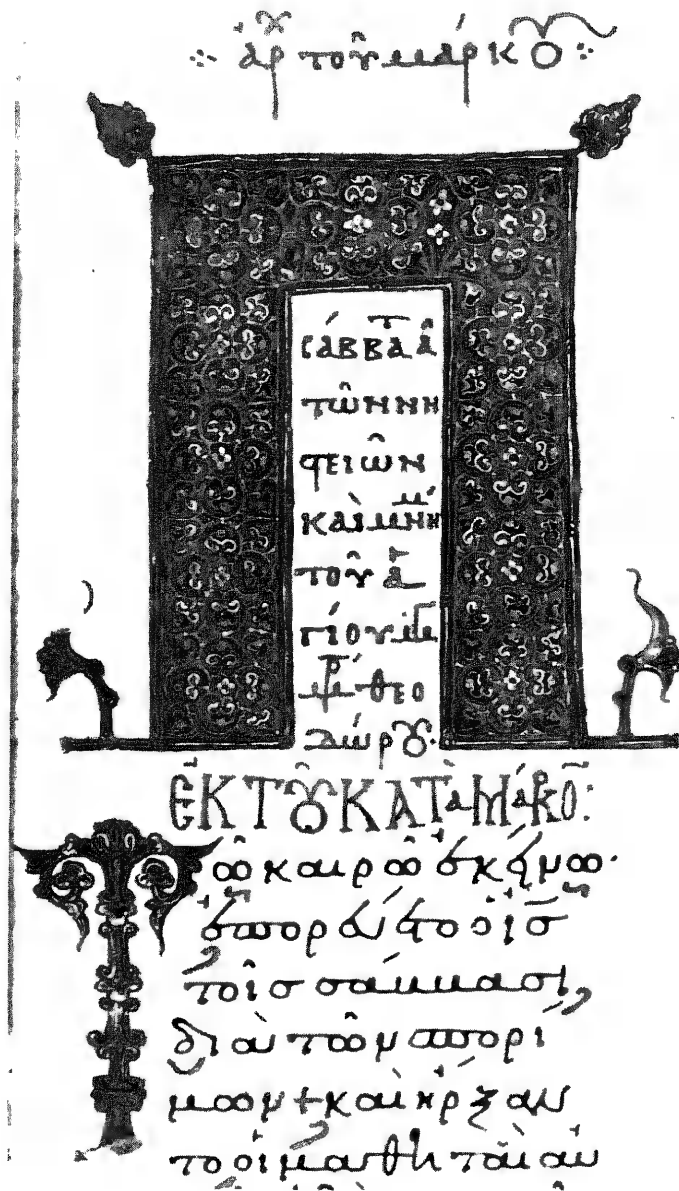 ἀρχ τοῦ μάρκου
σάββατ α
τῶν νη
στειῶν
καὶ μνήμ
τοῦ ἁ
γίου
μρ θεο
δώρου·
ἐκ τοῦ κατὰ Μάρκον:
Τῶ καιρῶ ἐκείνω·
ἐπορεύετο ὁ ἰς
τοῖς σάββασι,
διὰ τῶν σπορί
μων + καὶ ἤρξαν
το οἱ μαθηταὶ αὐ